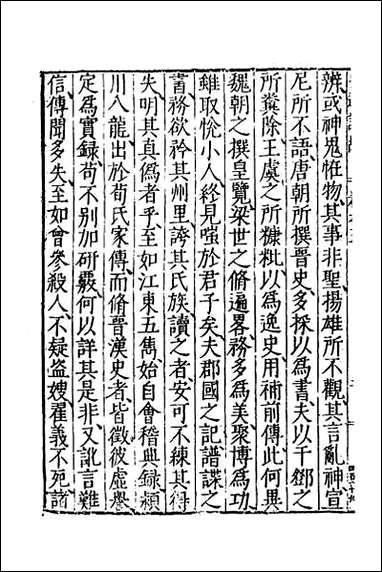 辨或神鬼恠物其事非聖揚雄所不觀其言亂神宣
尼所不語唐朝所撰晉史多採以爲書夫以干鄧之
所糞除王虞之所糠粃以爲逸史用補前傳此何異
魏朝之撰皇覽梁世之脩遍畧務多爲美聚博爲功
雖取恱小人終見嗤於君子矣夫郡國之記譜諜之
書務欲矜其州里誇其氏族讀之者安可不練其得
失明其真僞者乎至如江東五雋始自會稽典録潁
川八龍出於荀氏家傳而脩晉漢史者皆徵彼虛譽
定爲實録苟不別加研覈何以詳其是非又訛言難
信傳聞多失至如曾參殺人不疑盗嫂翟義不死諸